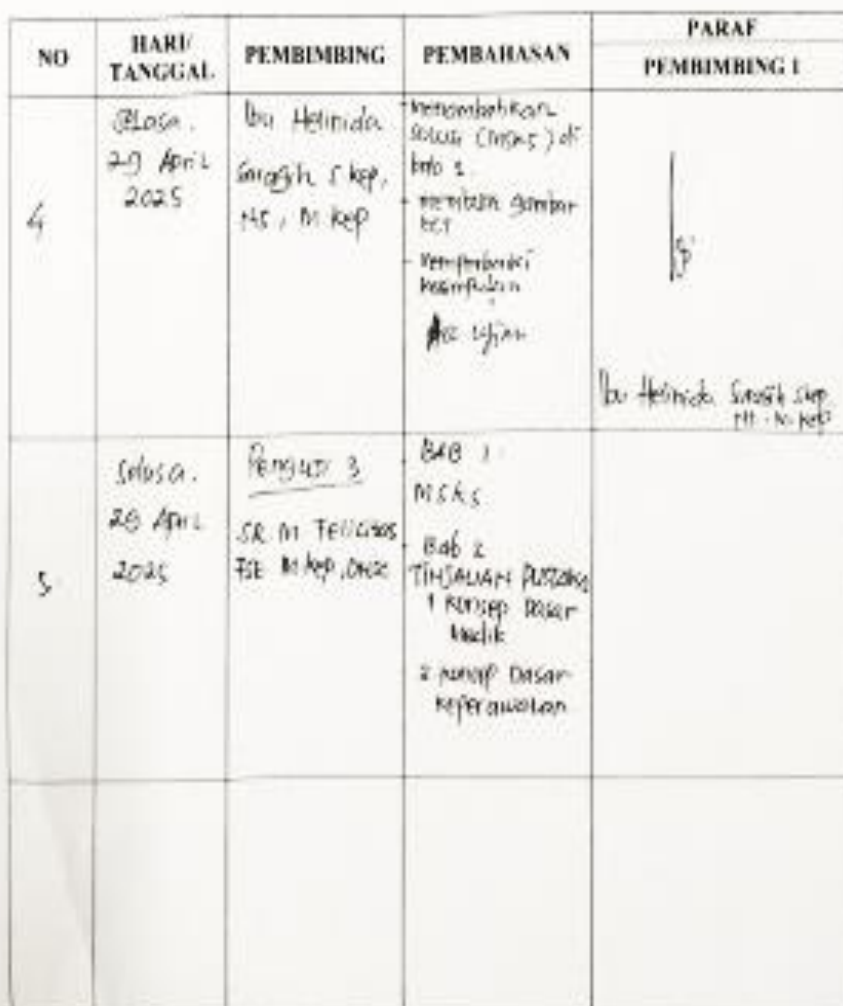 NO
HARI/
TANGGAL
PEMBIMBING
PEMBAHASAN
PARAF
PEMBIMBING I
4
29 April
2025
Ibu Helinida
S.kep,
NS, M.kep
- Menambahkan
(MSKS) di
bab 1
gambar
- Memperbaiki
kesimpulan
Acc Ujian
Ibu Helinida Saragih Skep
NS. M.kep
5.
Selasa.
April
2025
Penguji 3
SR. M Felicitas
FSE M.kep
- BAB 1
MSKS
- Bab 2
TINJAUAN PUSTAKA
1 Konsep Dasar
Medik
2 Konsep Dasar
keperawatan